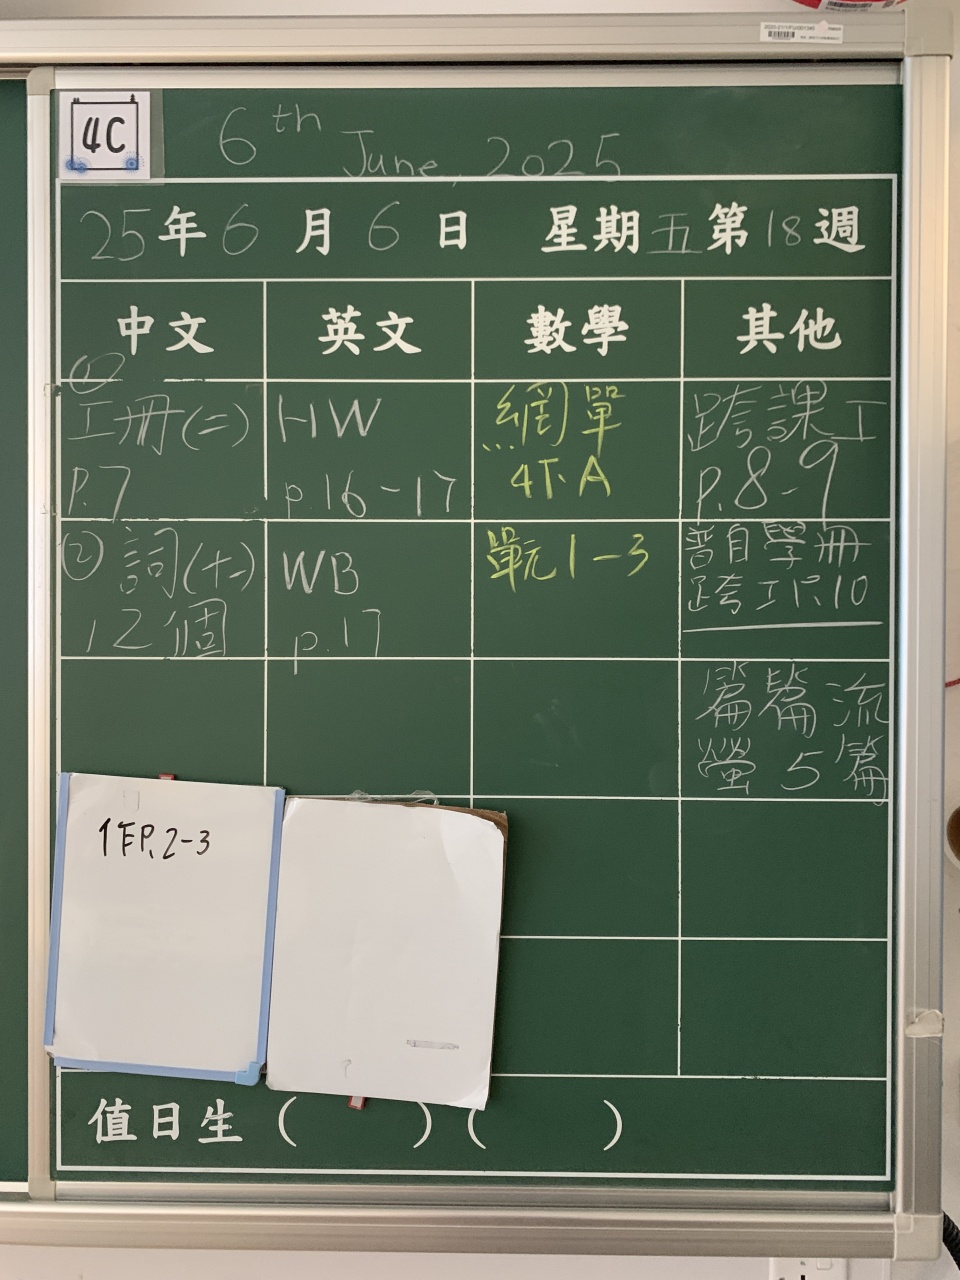 4C
6th June, 2025
25年6月6日 星期五第18週
中文 英文 數學 其他
①
工冊(二)
P.7
HW
p.16-17
網單
4下A
跨課工
P.8-9
② 詞(十二)
12個
WB
p.17
單元1-3
普自學冊
跨工P.10
篇篇流
螢 5篇
P.2-3
值日生 ( ) ( )